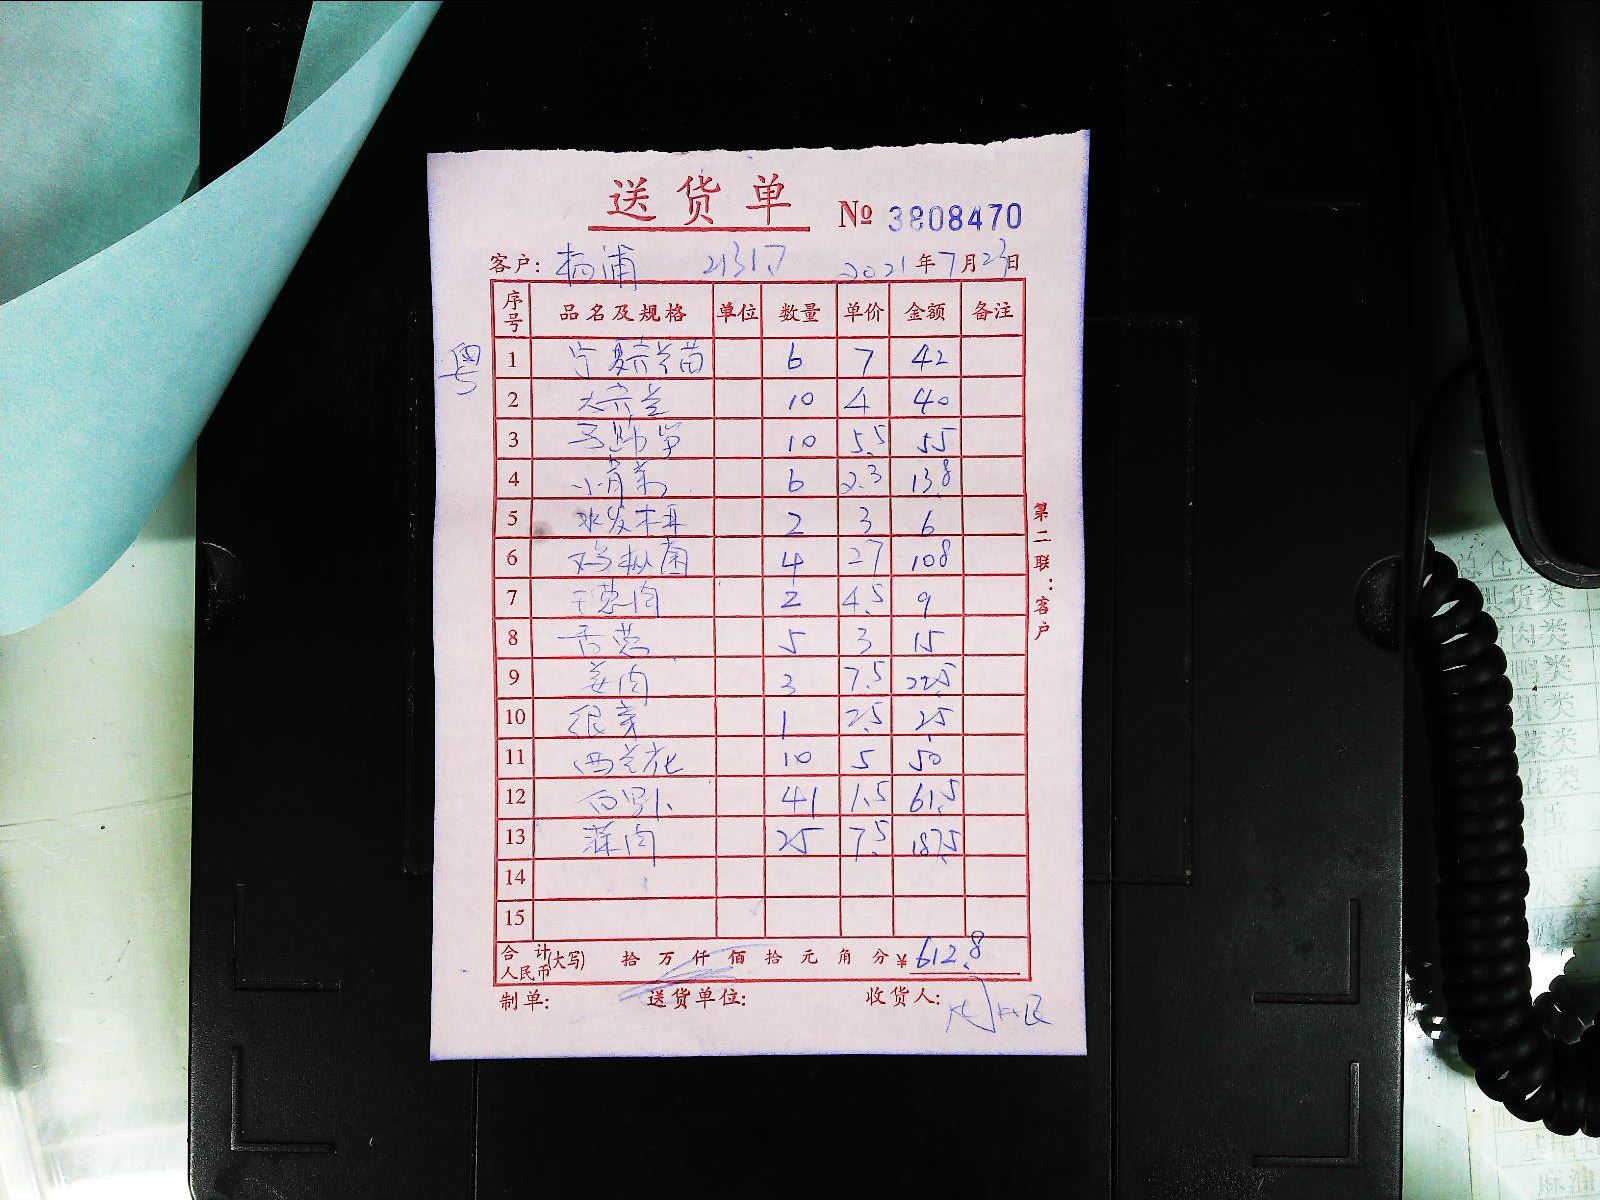 送货单 № 3808470
客户: 杨浦 2021年7月23日
序号 品名及规格 单位 数量 单价 金额 备注
粤
1 宁夏菜苗 6 7 42
2 大芥兰 10 4 40
3 10 5.5 55
4 小青菜 6 2.3 13.8
5 水发木耳 2 3 6
6 鸡枞菌 4 27 108
7 干葱肉 2 4.5 9
8 香葱 5 3 15
9 姜肉 3 7.5 22.5
10 银芽 1 2.5 2.5
11 西兰花 10 5 50
12 白萝卜 41 1.5 61.5
13 肉 25 7.5 187.5
14
15
合计人民币(大写) 拾 万 仟 佰 拾 元 角 分 ¥ 612.8
制单: 送货单位: 收货人:
第二联:客户
货类
肉类
鸭类
果类
菜类